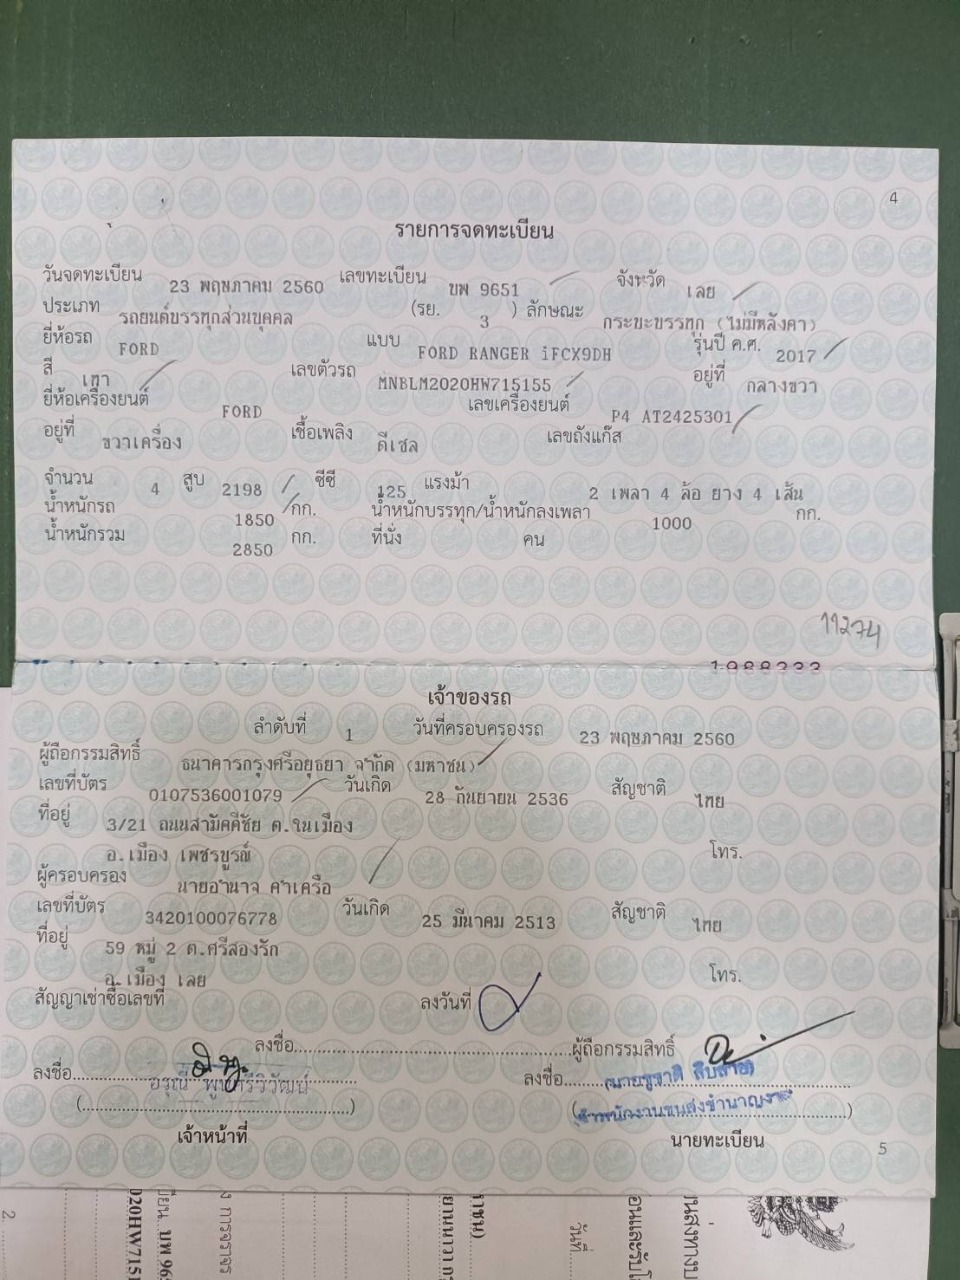 4
รายการจดทะเบียน
วันจดทะเบียน 23 พฤษภาคม 2560 เลขทะเบียน บพ 9651 จังหวัด เลย
ประเภท รถยนต์บรรทุกส่วนบุคคล (รย. 3 ) ลักษณะ กระบะบรรทุก (ไม่มีหลังคา)
ยี่ห้อรถ FORD แบบ FORD RANGER iFCX9DH รุ่นปี ค.ศ. 2017
สี เทา เลขตัวรถ MNBLM2020HW715155 อยู่ที่ กลางขวา
ยี่ห้อเครื่องยนต์ FORD เลขเครื่องยนต์ P4 AT2425301
อยู่ที่ ขวาเครื่อง เชื้อเพลิง ดีเซล เลขถังแก๊ส
จำนวน 4 สูบ 2198 ซีซี 125 แรงม้า 2 เพลา 4 ล้อ ยาง 4 เส้น
น้ำหนักรถ 1850 กก. น้ำหนักบรรทุก/น้ำหนักลงเพลา 1000 กก.
น้ำหนักรวม 2850 กก. ที่นั่ง คน
11274
1988333
เจ้าของรถ
ลำดับที่ 1 วันที่ครอบครองรถ 23 พฤษภาคม 2560
ผู้ถือกรรมสิทธิ์ ธนาคารกรุงศรีอยุธยา จำกัด (มหาชน)
เลขที่บัตร 0107536001079 วันเกิด 28 กันยายน 2536 สัญชาติ ไทย
ที่อยู่ 3/21 ถนนสามัคคีชัย ต.ในเมือง
อ.เมือง เพชรบูรณ์ โทร.
ผู้ครอบครอง นายอำนาจ คำเครือ
เลขที่บัตร 3420100076778 วันเกิด 25 มีนาคม 2513 สัญชาติ ไทย
ที่อยู่ 59 หมู่ 2 ต.ศรีสองรัก
อ.เมือง เลย โทร.
สัญญาเช่าซื้อเลขที่ ลงวันที่
ลงชื่อ ผู้ถือกรรมสิทธิ์
ลงชื่อ ลงชื่อ
อรุณี พูนศรีวิวัฒน์
เจ้าพนักงานขนส่งชำนาญงาน
เจ้าหน้าที่ นายทะเบียน
5
2
020HW7151
บพ 96
การจราจร
วันที่